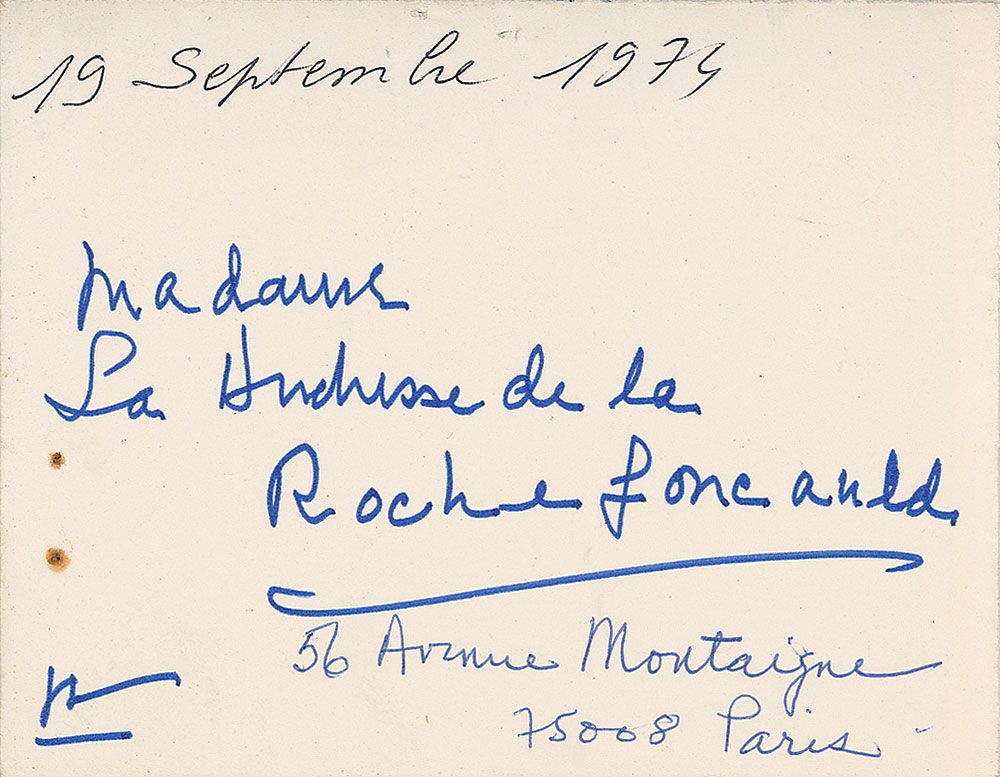 19 Septembre 1974
Madame
La Duchesse de la
Rochefoucauld
56 Avenue Montaigne
75008 Paris